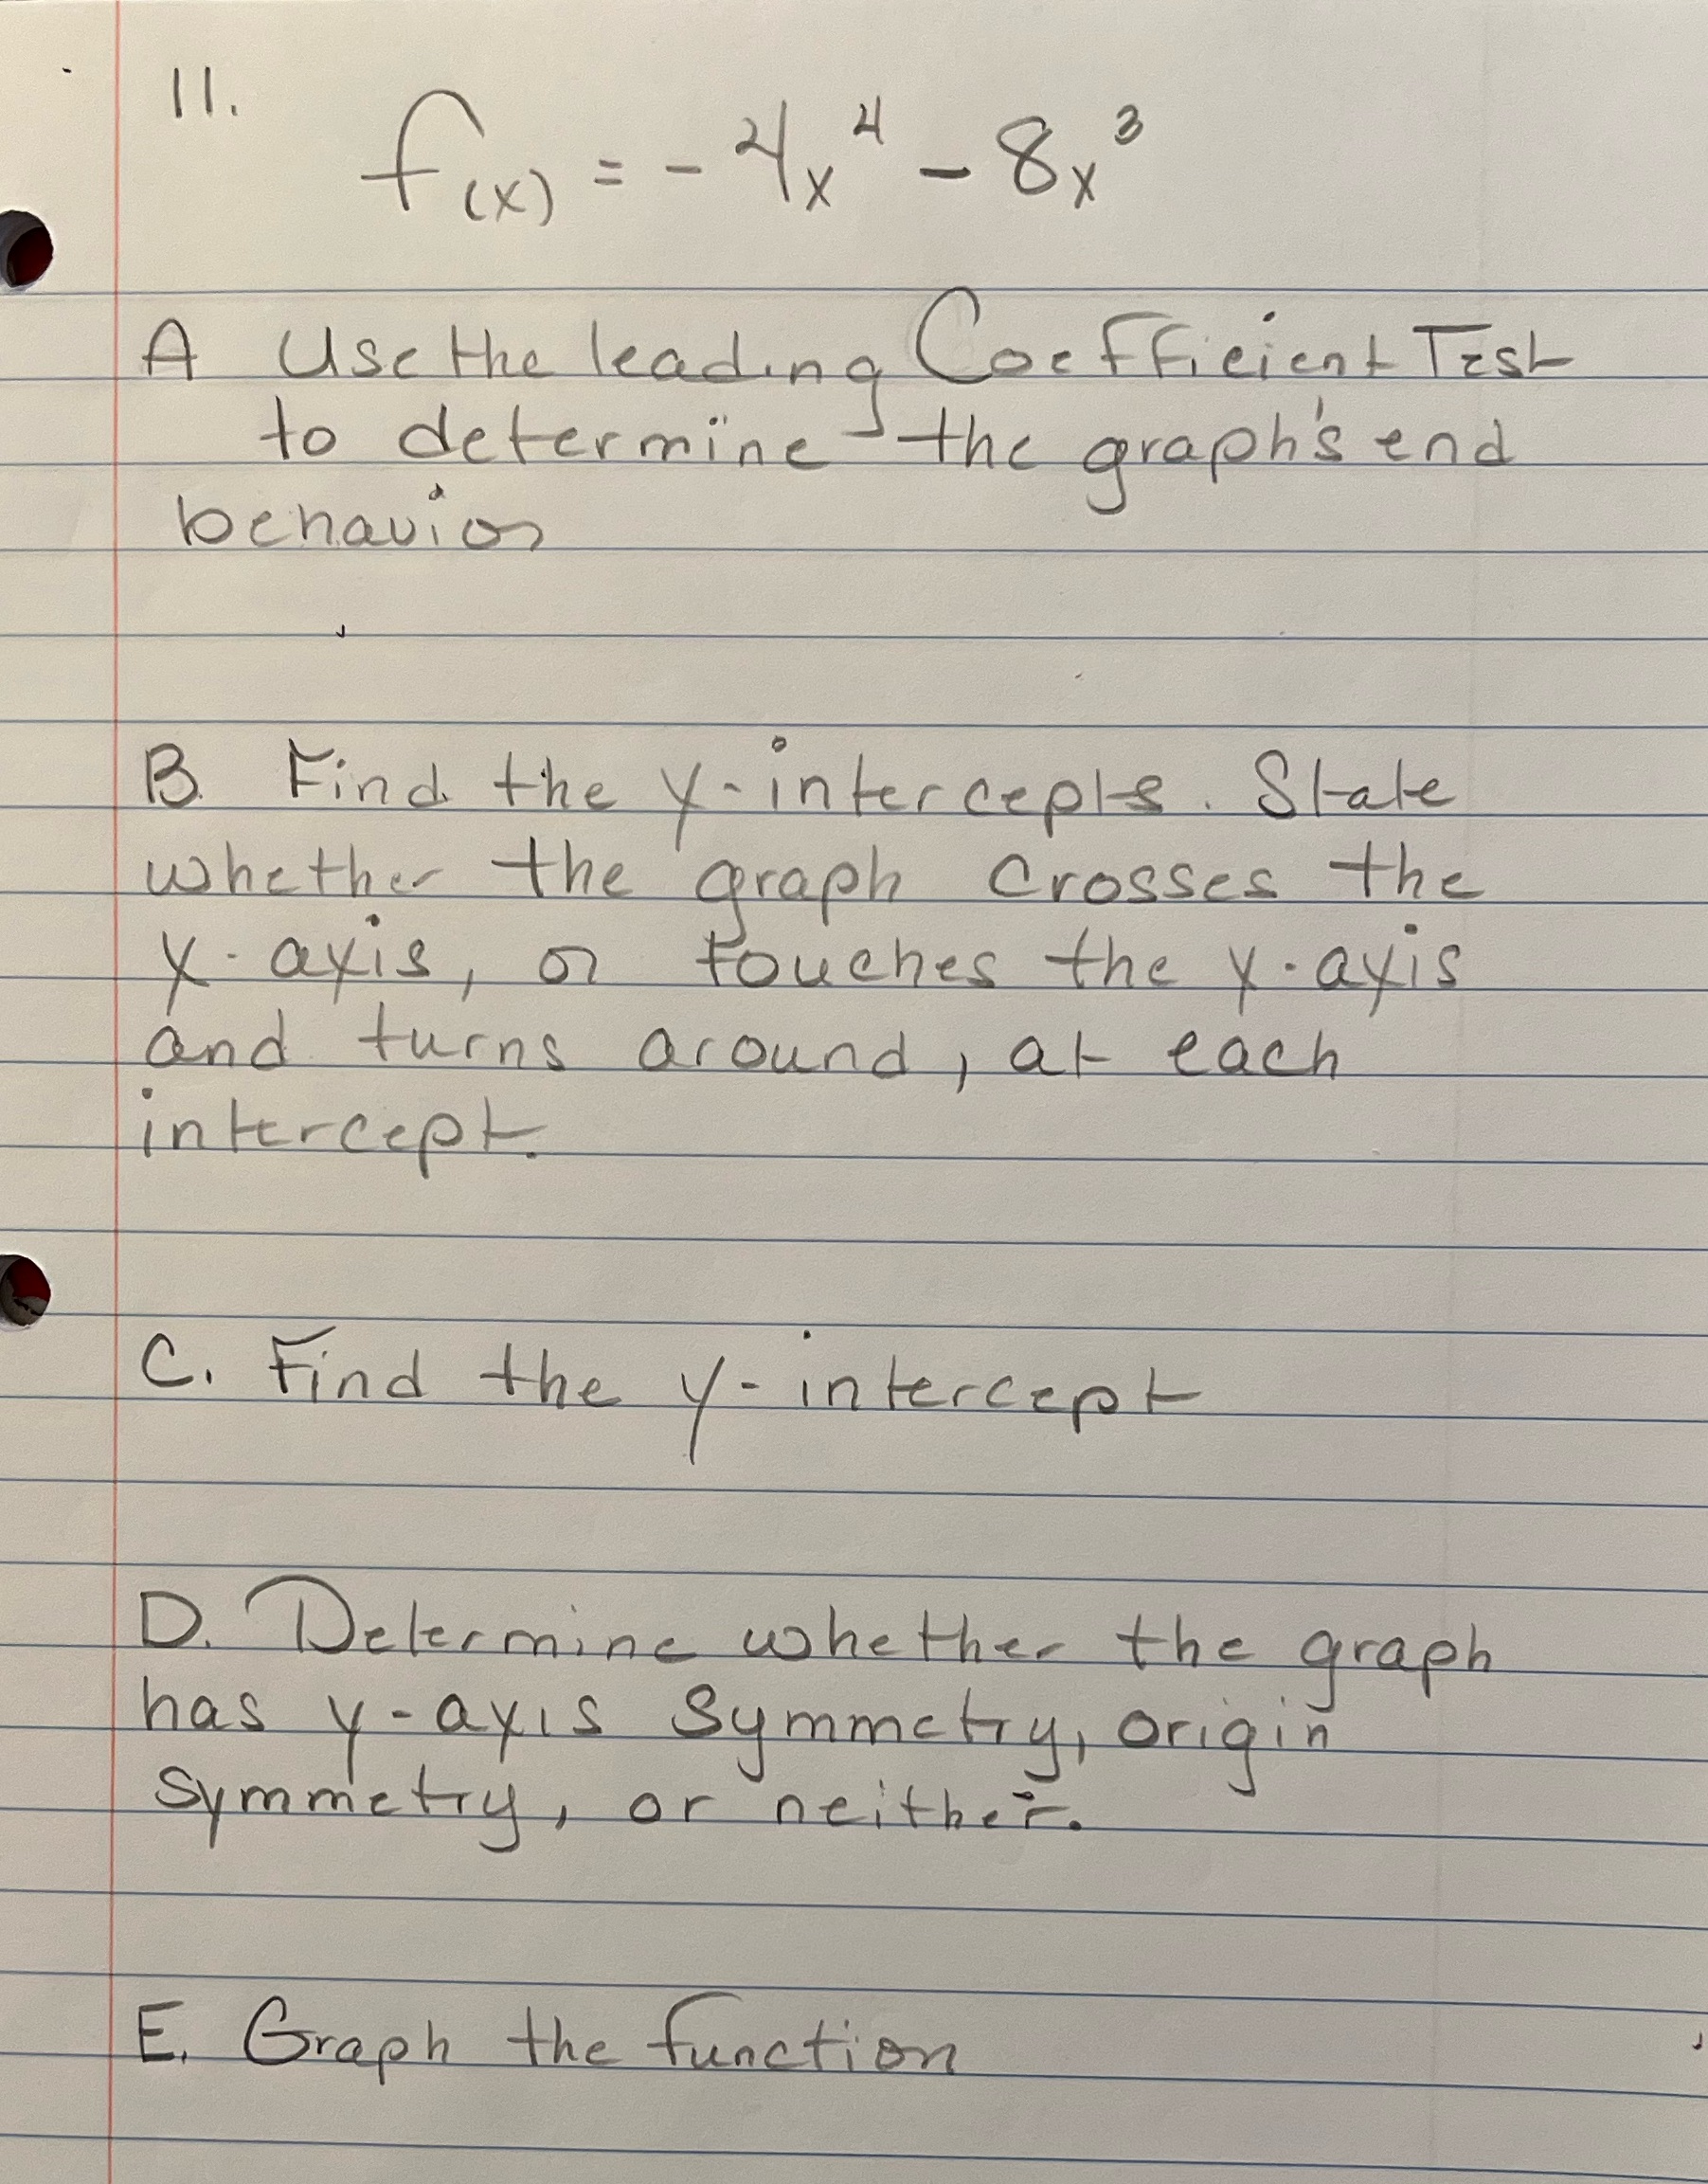 11.
f(x) = - 4x⁴ - 8x³
A Use the leading Coefficient Test
to determine the graph's end
behavior
B. Find the y-intercepts. State
whether the graph crosses the
x-axis, or touches the x-axis
and turns around, at each
intercept.
C. Find the y-intercept
D. Determine whether the graph
has y-axis symmetry, origin
symmetry, or neither.
E. Graph the function